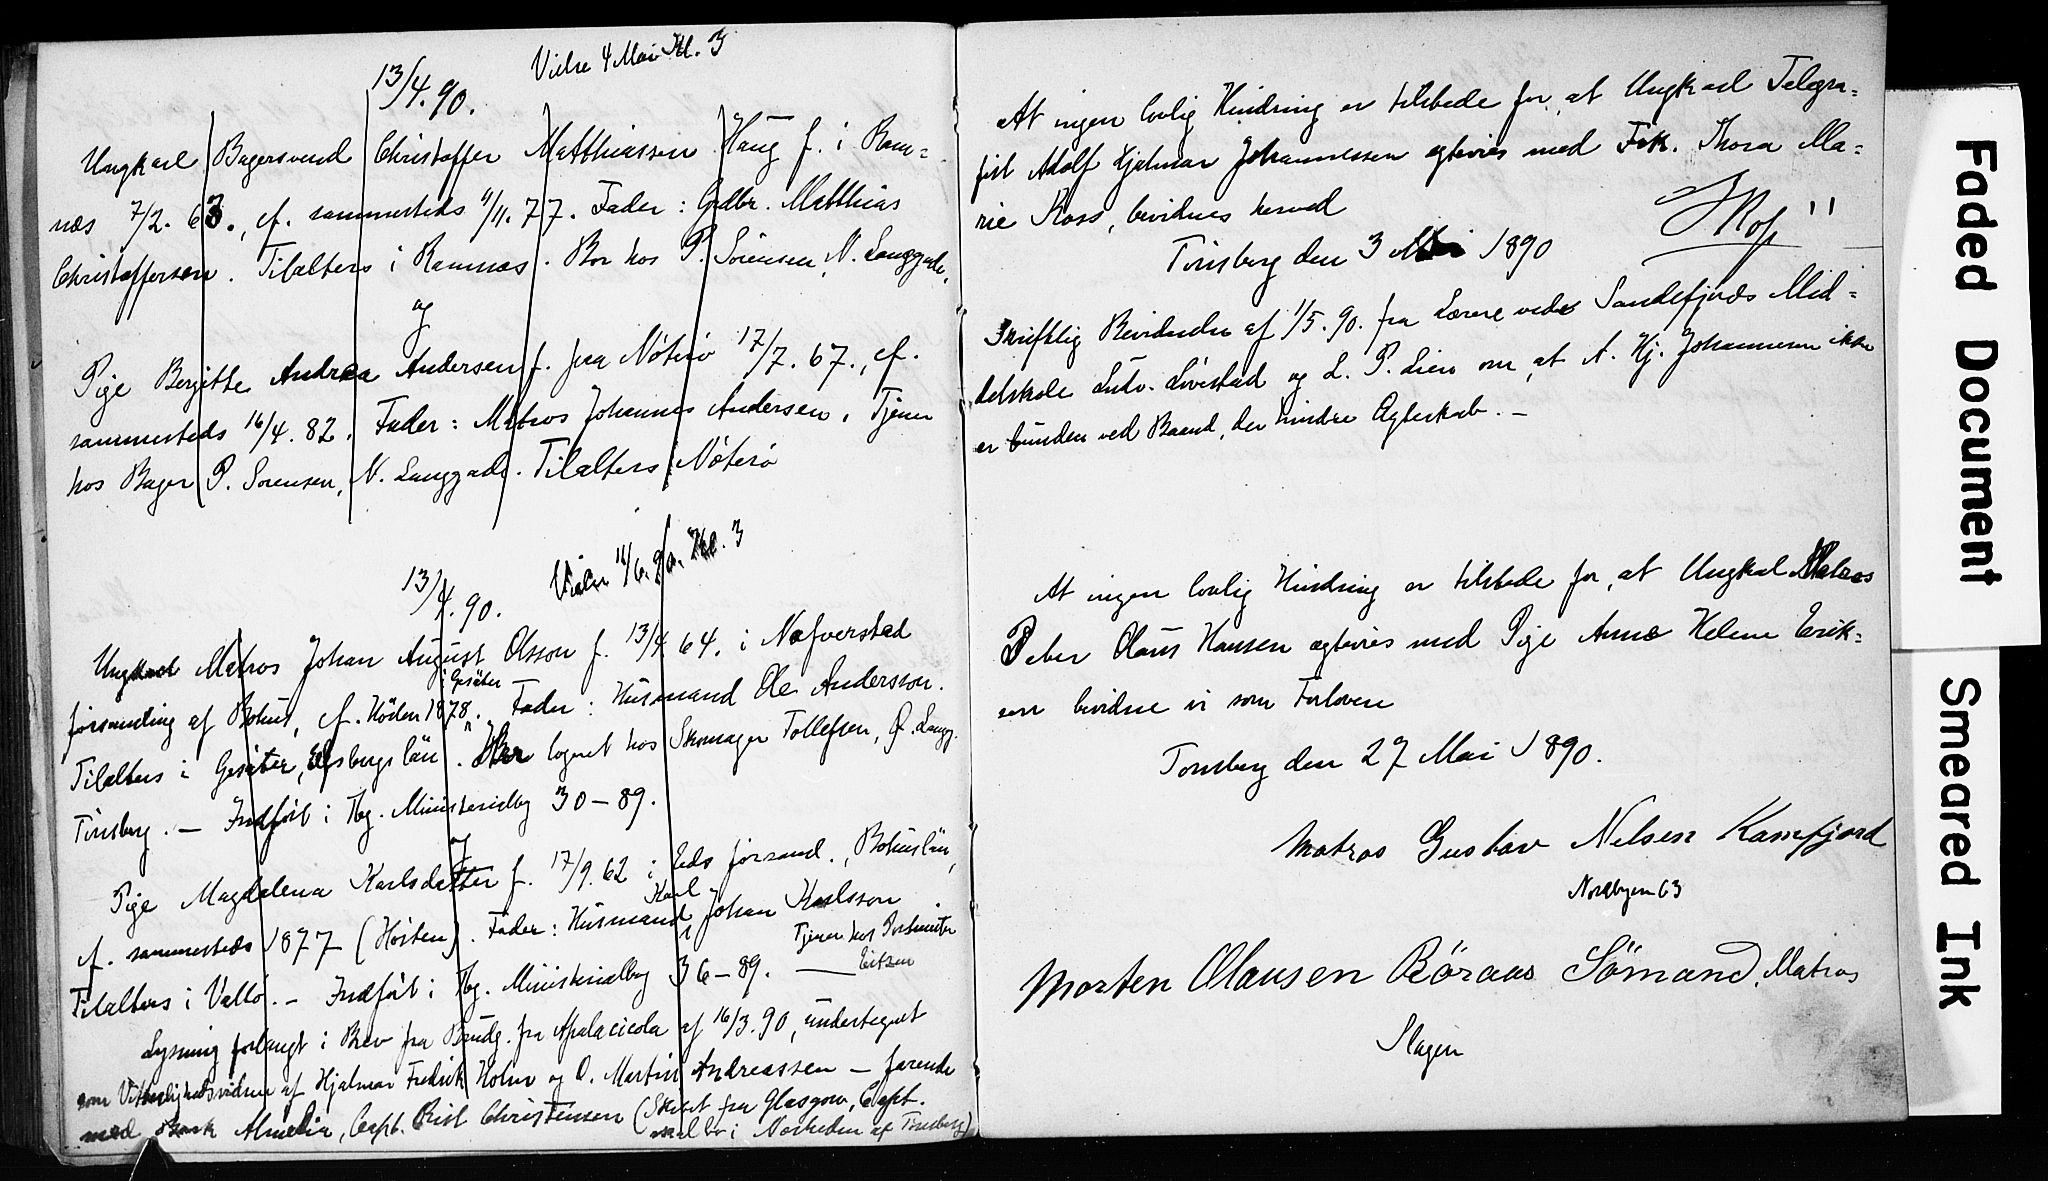 Vielse 4 Mai Kl. 3
13/4. 90.
Ungkarl Bagersvend Christoffer Matthiassen Haug f. i Ram=
næs 7/2. 63., cf. sammesteds 4/11. 77. Fader: Grdbr. Matthias
Christoffersen. Tilalters i Ramnæs. Bor hos P. Sörensen, N. Langgade.
og
Pige Bergitte Andrea Andersen f. paa Nöterö 17/7. 67., cf.
sammesteds 16/4. 82. Fader: Matros Johannes Andersen. Tjener
hos Bager P. Sörensen, N. Langgade. Tilalters i Nöterö
Vielse 14/6. 90. Kl. 3
13/4. 90.
Ungkarl Matros Johan August Olsson f. 13/4 64. i Nafverstad
i Gesäter
församling af Bohus, cf. Hösten 1878. Fader: Husmand Ole Andersson.
Tilalters i Gesäter, Elfsborgs län. Har logeret hos Skomager Tollefsen, Ø. Langg.
Tönsberg. — Indfört i Tbg. Ministerialbog 30-89.
og
Pige Magdalena Karlsdatter f. 17/9. 62 i Eds församl., Bohuslän,
Karl
cf. sammesteds 1877 (Hösten). Fader: Husmand Johan Karlsson
Tjener hos Postmester
Tilalters i Vallö. — Indfört i Tbg. Ministerialbog 36-89. — Eitzen
Lysning forlangt i Brev fra Brudg. fra Apalacicola af 16/3. 90, undertegnet
som Vitterlighedsvidner af Hjalmar Fredrik Holm og O. Martin Andreassen — farende
med Bark Almedia, Capt. Christensen (Skibet fra Glasgow, Capt.
i Nærheden af Tönsberg)
At ingen lovlig Hindring er tilstede for, at Ungkarl Telegra=
fist Adolf Hjalmar Johannessen ægtevies med Frk. Thora Ma=
rie Koss, bevidnes herved
Tönsberg den 3 Mai 1890
Skriftlig Bevidnelse af 1/5. 90. fra Lærere ved Sandefjords Mid=
delskole Ludv. Lövestad og L. P. Lien om, at A. Hj. Johannessen ikke
er bunden ved Baand, der hindre Ægteskab. —
At ingen lovlig Hindring er tilstede for, at Ungkarl Matros
Peter Olaus Hansen ægtevies med Pige Anne Helene Erik=
sen bevidne vi som Forlovere
Tönsberg den 27 Mai 1890.
Matros Gustav Nilsen Kamfjord
Nordbyen 63
Morten Olausen Röraas Sömand, Matros
Slagen
Faded Document
Smeared Ink